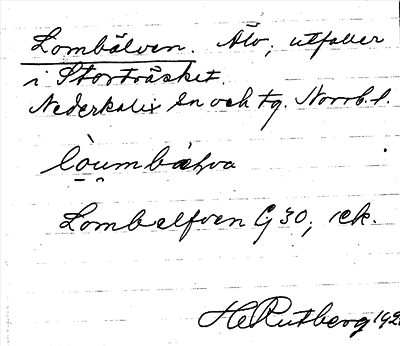 Lombälven. Älv, utfaller
i Storträsket.
Nederkalix sn och tg. Norrb. l.
Lombelfven G 30, rek.
H Rutberg 192